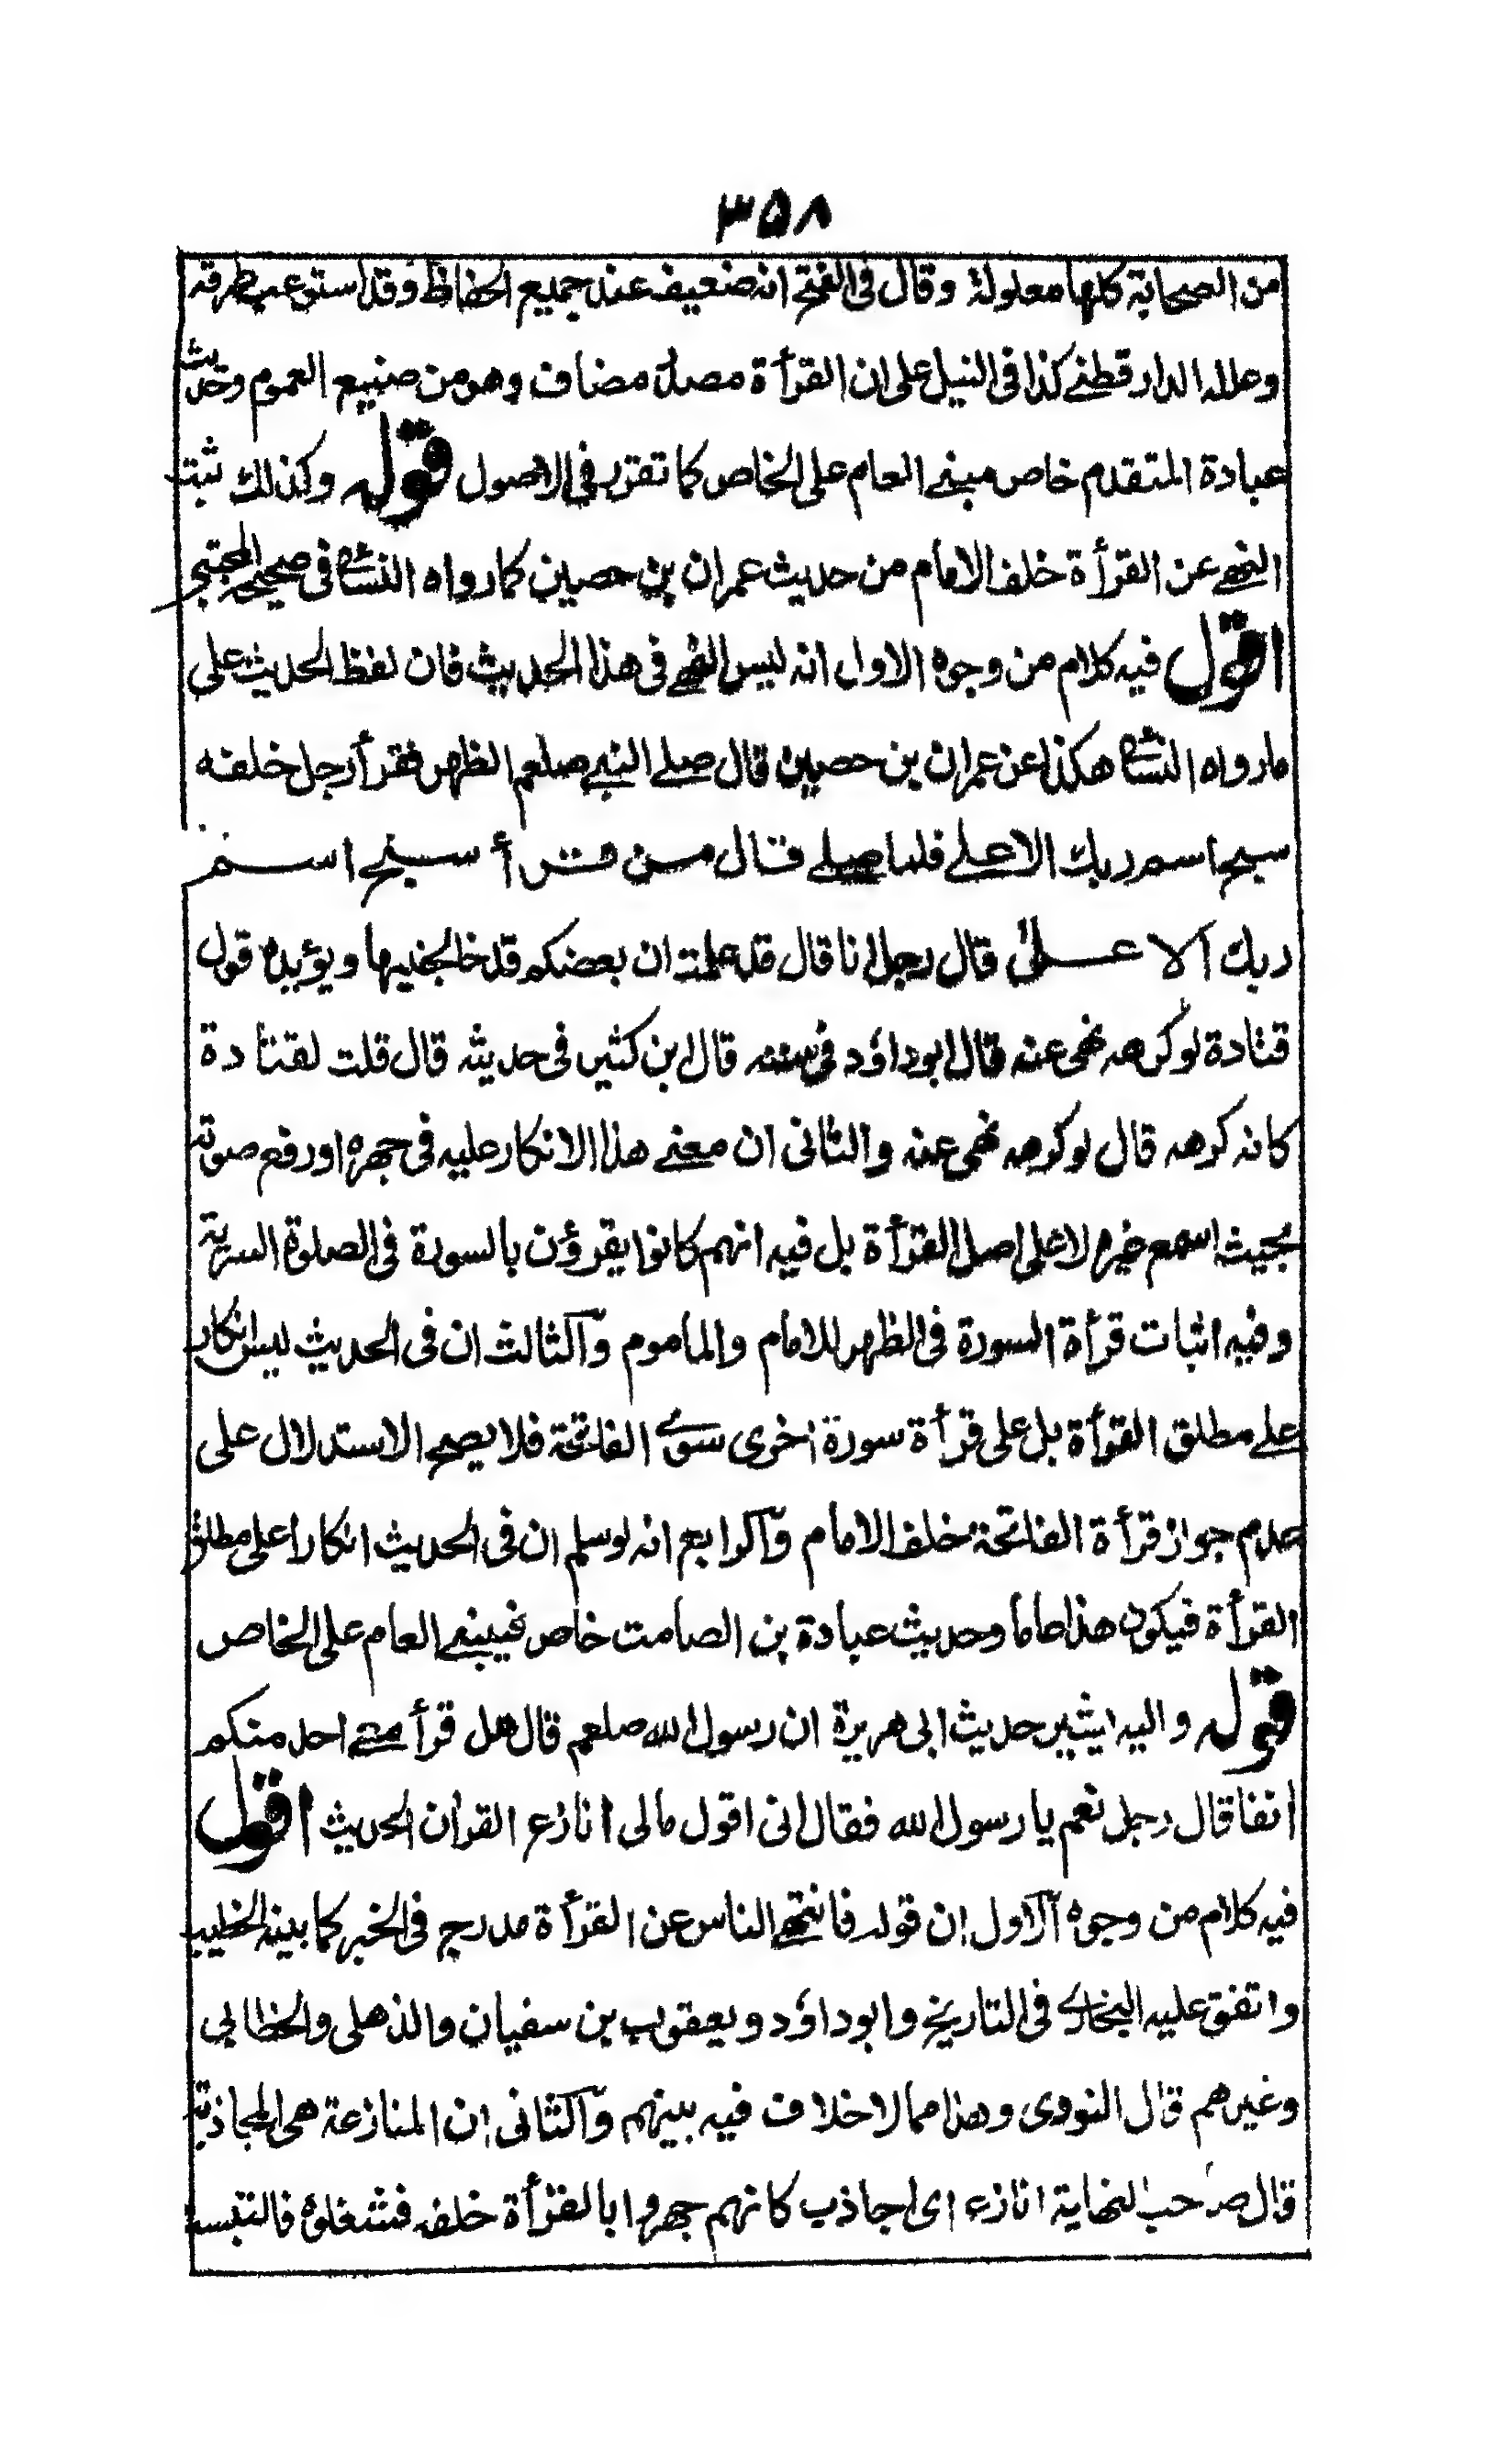 ۳۵۸
من الصحابة كلها معلولة وقال فى الفتح انه ضعيف عند جميع الحفاظ وقد استوعب طرقه
وعلله الدارقطنے كذا فى النيل على ان القرأة مصدر مضاف وهو من صنيع العموم وحديث
عبادة المتقدم خاص مبنے العام على الخاص كما تقرر فى الاصول قوله وكذلك ثبت
النهے عن القرأة خلف الامام من حديث عمران بن حصين كما رواه النسائے فى صحيحه المجتبى
اقول فيه كلام من وجوه الاول انه ليس النهے فى هذا الحديث فان لفظ الحديث على
ما رواه النسائے هكذا عن عمران بن حصين قال صلے النبے صلعم الظهر فقرأ رجل خلفه
سبح اسم ربك الاعلے فلما صلے قال من قرأ سبح اسم
ربك الاعلىٰ قال رجل انا قال قد علمت ان بعضكم قد خالجنيها ويؤيده قول
قتادة لو كرهه نهى عنه قال ابوداؤد فى سننه قال ابن كثير فى حديثه قال قلت لقتادة
كانه كرهه قال لو كرهه نهى عنه والثانى ان معنے هذا الانكار عليه فى جهره او رفع صوته
بحيث اسمع غيره لا على اصل القرأة بل فيه انهم كانوا يقرؤن بالسورة فى الصلوة السرية
وفيه اثبات قرأة السورة فى الظهر للامام والماموم والثالث ان فى الحديث ليس انكار
علے مطلق القرأة بل على قرأة سورة اخرى سوے الفاتحة فلا يصح الاستدلال على
عدم جواز قرأة الفاتحة خلف الامام والرابع انه لو سلم ان فى الحديث انكارا على مطلق
القرأة فيكون هذا عاما وحديث عبادة بن الصامت خاص فيبنے العام على الخاص
قوله واليه يشير حديث ابى هريرة ان رسول الله صلعم قال هل قرأ معے احد منكم
انفا قال رجل نعم يا رسول الله فقال انى اقول مالى انازع القران الحديث اقول
فيه كلام من وجوه الاول ان قوله فانتهے الناس عن القرأة مدرج فى الخبر كما بينه الخطيب
واتفق عليه البخارے فى التاريخ وابوداؤد ويعقوب بن سفيان والذهلى والخطابى
وغيرهم قال النووى وهذا مما لا خلاف فيه بينهم والثانى ان المنازعة هى المجاذبة
قال صاحب النهاية انازع اى اجاذب كانهم جهروا بالقرأة خلفه فشغلوه فالتبست